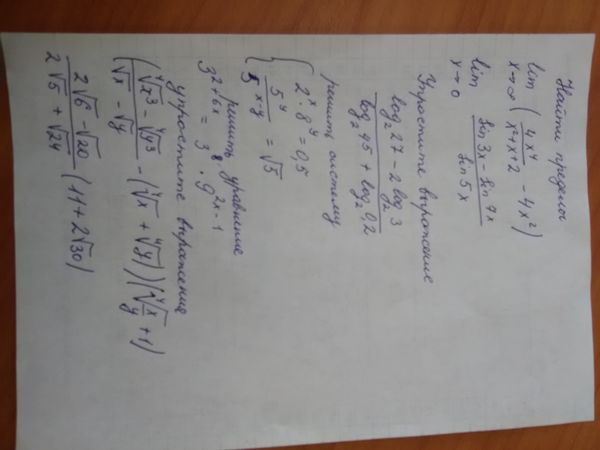 Найти пределы
lim x→∞ (4x⁴/(x²+x+2) - 4x²)
lim x→0 (sin 3x - sin 7x)/(sin 5x)
Упростите выражение
(log₂ 27 - 2 log₂ 3)/(log₂ 45 + log₂ 0,2)
решить систему
{ 2ˣ · 8ʸ = 0,5
5ʸ/5ˣ⁻ʸ = √5
решить уравнение
3²⁺⁶ˣ = 3⁸ · 9²ˣ⁻¹
упростите выражения
((⁴√x³ - ⁴√y³)/(√x - √y) - (⁴√x + ⁴√y)) (⁴√(x/y) + 1)
(2√6 - √20)/(2√5 + √24) (11 + 2√30)